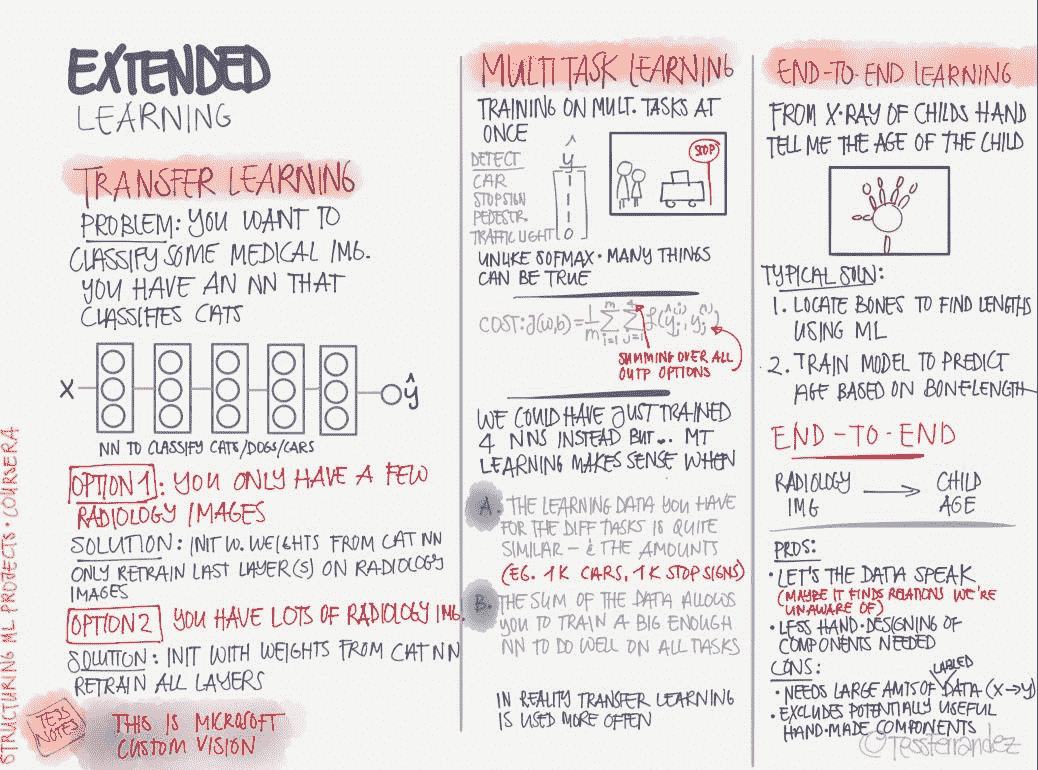 EXTENDED
LEARNING
TRANSFER LEARNING
PROBLEM: YOU WANT TO
CLASSIFY SOME MEDICAL IMG.
YOU HAVE AN NN THAT
CLASSIFIES CATS
X ŷ
NN TO CLASSIFY CATS/DOGS/CARS
OPTION 1: YOU ONLY HAVE A FEW
RADIOLOGY IMAGES
SOLUTION: INIT W. WEIGHTS FROM CAT NN
ONLY RETRAIN LAST LAYER(S) ON RADIOLOGY
IMAGES
OPTION 2 YOU HAVE LOTS OF RADIOLOGY IMG.
SOLUTION: INIT WITH WEIGHTS FROM CAT NN
RETRAIN ALL LAYERS
TESS
NOTES
THIS IS MICROSOFT
CUSTOM VISION
STRUCTURING ML PROJECTS · COURSERA
MULTI TASK LEARNING
TRAINING ON MULT. TASKS AT
ONCE
DETECT ŷ
CAR
STOPSIGN
PEDESTR.
TRAFFIC LIGHT 0
STOP
UNLIKE SOFMAX · MANY THINGS
CAN BE TRUE
COST: J(w,b) = 1/m Σ i=1 m Σ j=1 4 ℒ(ŷj(i), yj(i))
SUMMING OVER ALL
OUTP OPTIONS
WE COULD HAVE JUST TRAINED
4 NNS INSTEAD BUT... MT
LEARNING MAKES SENSE WHEN
A. THE LEARNING DATA YOU HAVE
FOR THE DIFF TASKS IS QUITE
SIMILAR – & THE AMOUNTS
(EG. 1K CARS, 1K STOP SIGNS)
B. THE SUM OF THE DATA ALLOWS
YOU TO TRAIN A BIG ENOUGH
NN TO DO WELL ON ALL TASKS
IN REALITY TRANSFER LEARNING
IS USED MORE OFTEN
END-TO-END LEARNING
FROM X-RAY OF CHILDS HAND
TELL ME THE AGE OF THE CHILD
TYPICAL SOLN:
1. LOCATE BONES TO FIND LENGTHS
USING ML
2. TRAIN MODEL TO PREDICT
AGE BASED ON BONELENGTH
END-TO-END
RADIOLOGY → CHILD
IMG AGE
PROS:
· LET'S THE DATA SPEAK
(MAYBE IT FINDS RELATIONS WE'RE
UNAWARE OF)
· LESS HAND-DESIGNING OF
COMPONENTS NEEDED
CONS:
LABLED
· NEEDS LARGE AMTS OF DATA (X→Y)
· EXCLUDES POTENTIALLY USEFUL
HAND-MADE COMPONENTS
@Tessferrandez